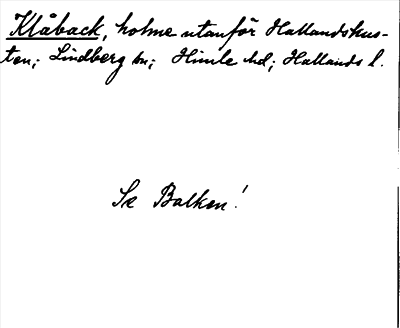 Klåback, holme utanför Hallandskus-
ten; Lindberg sn; Himle hd; Hallands l.
Se Balken!